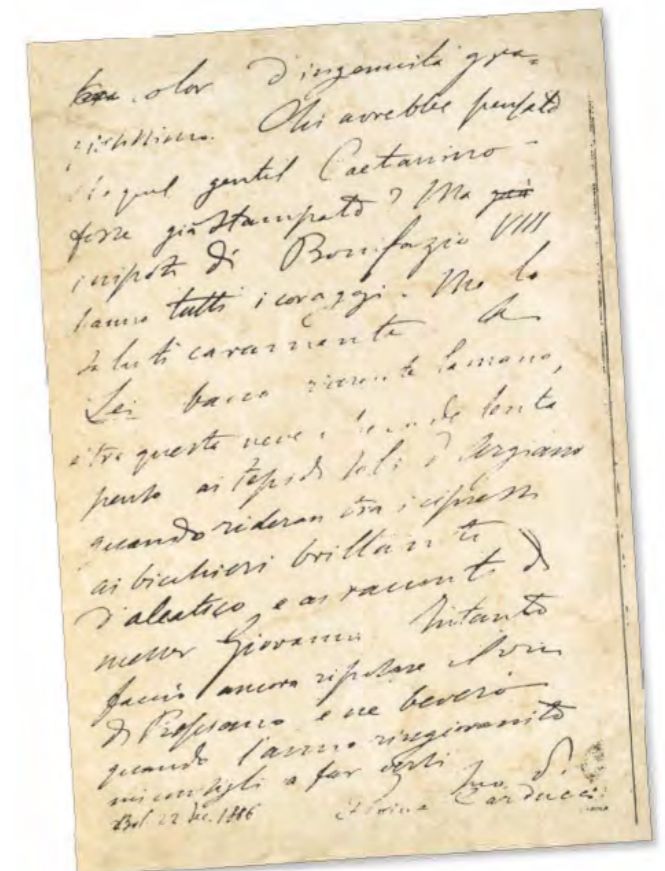 color d'ingenuità gra-
ziosissima. Chi avrebbe pensato
quel gentil Caetanino -
forse già stampato? Ma già
i nipoti di Bonifazio VIII
hanno tutti i coraggi. Me lo
saluti caramente. A
Lei bacio riverente la mano,
e tra questa neve che scende lenta
penso ai tepidi soli d'Argiano
quando rideran tra i cipressi
ai bicchieri brillanti
d'aleatico e ai racconti di
messer Giovanni. Intanto
faccio ancora riposare il vin
di e ne beverò
quando l'anno ringiovanito
mi consigli a far versi
Suo d.
Bol. 22 dec. 1886 Carducci